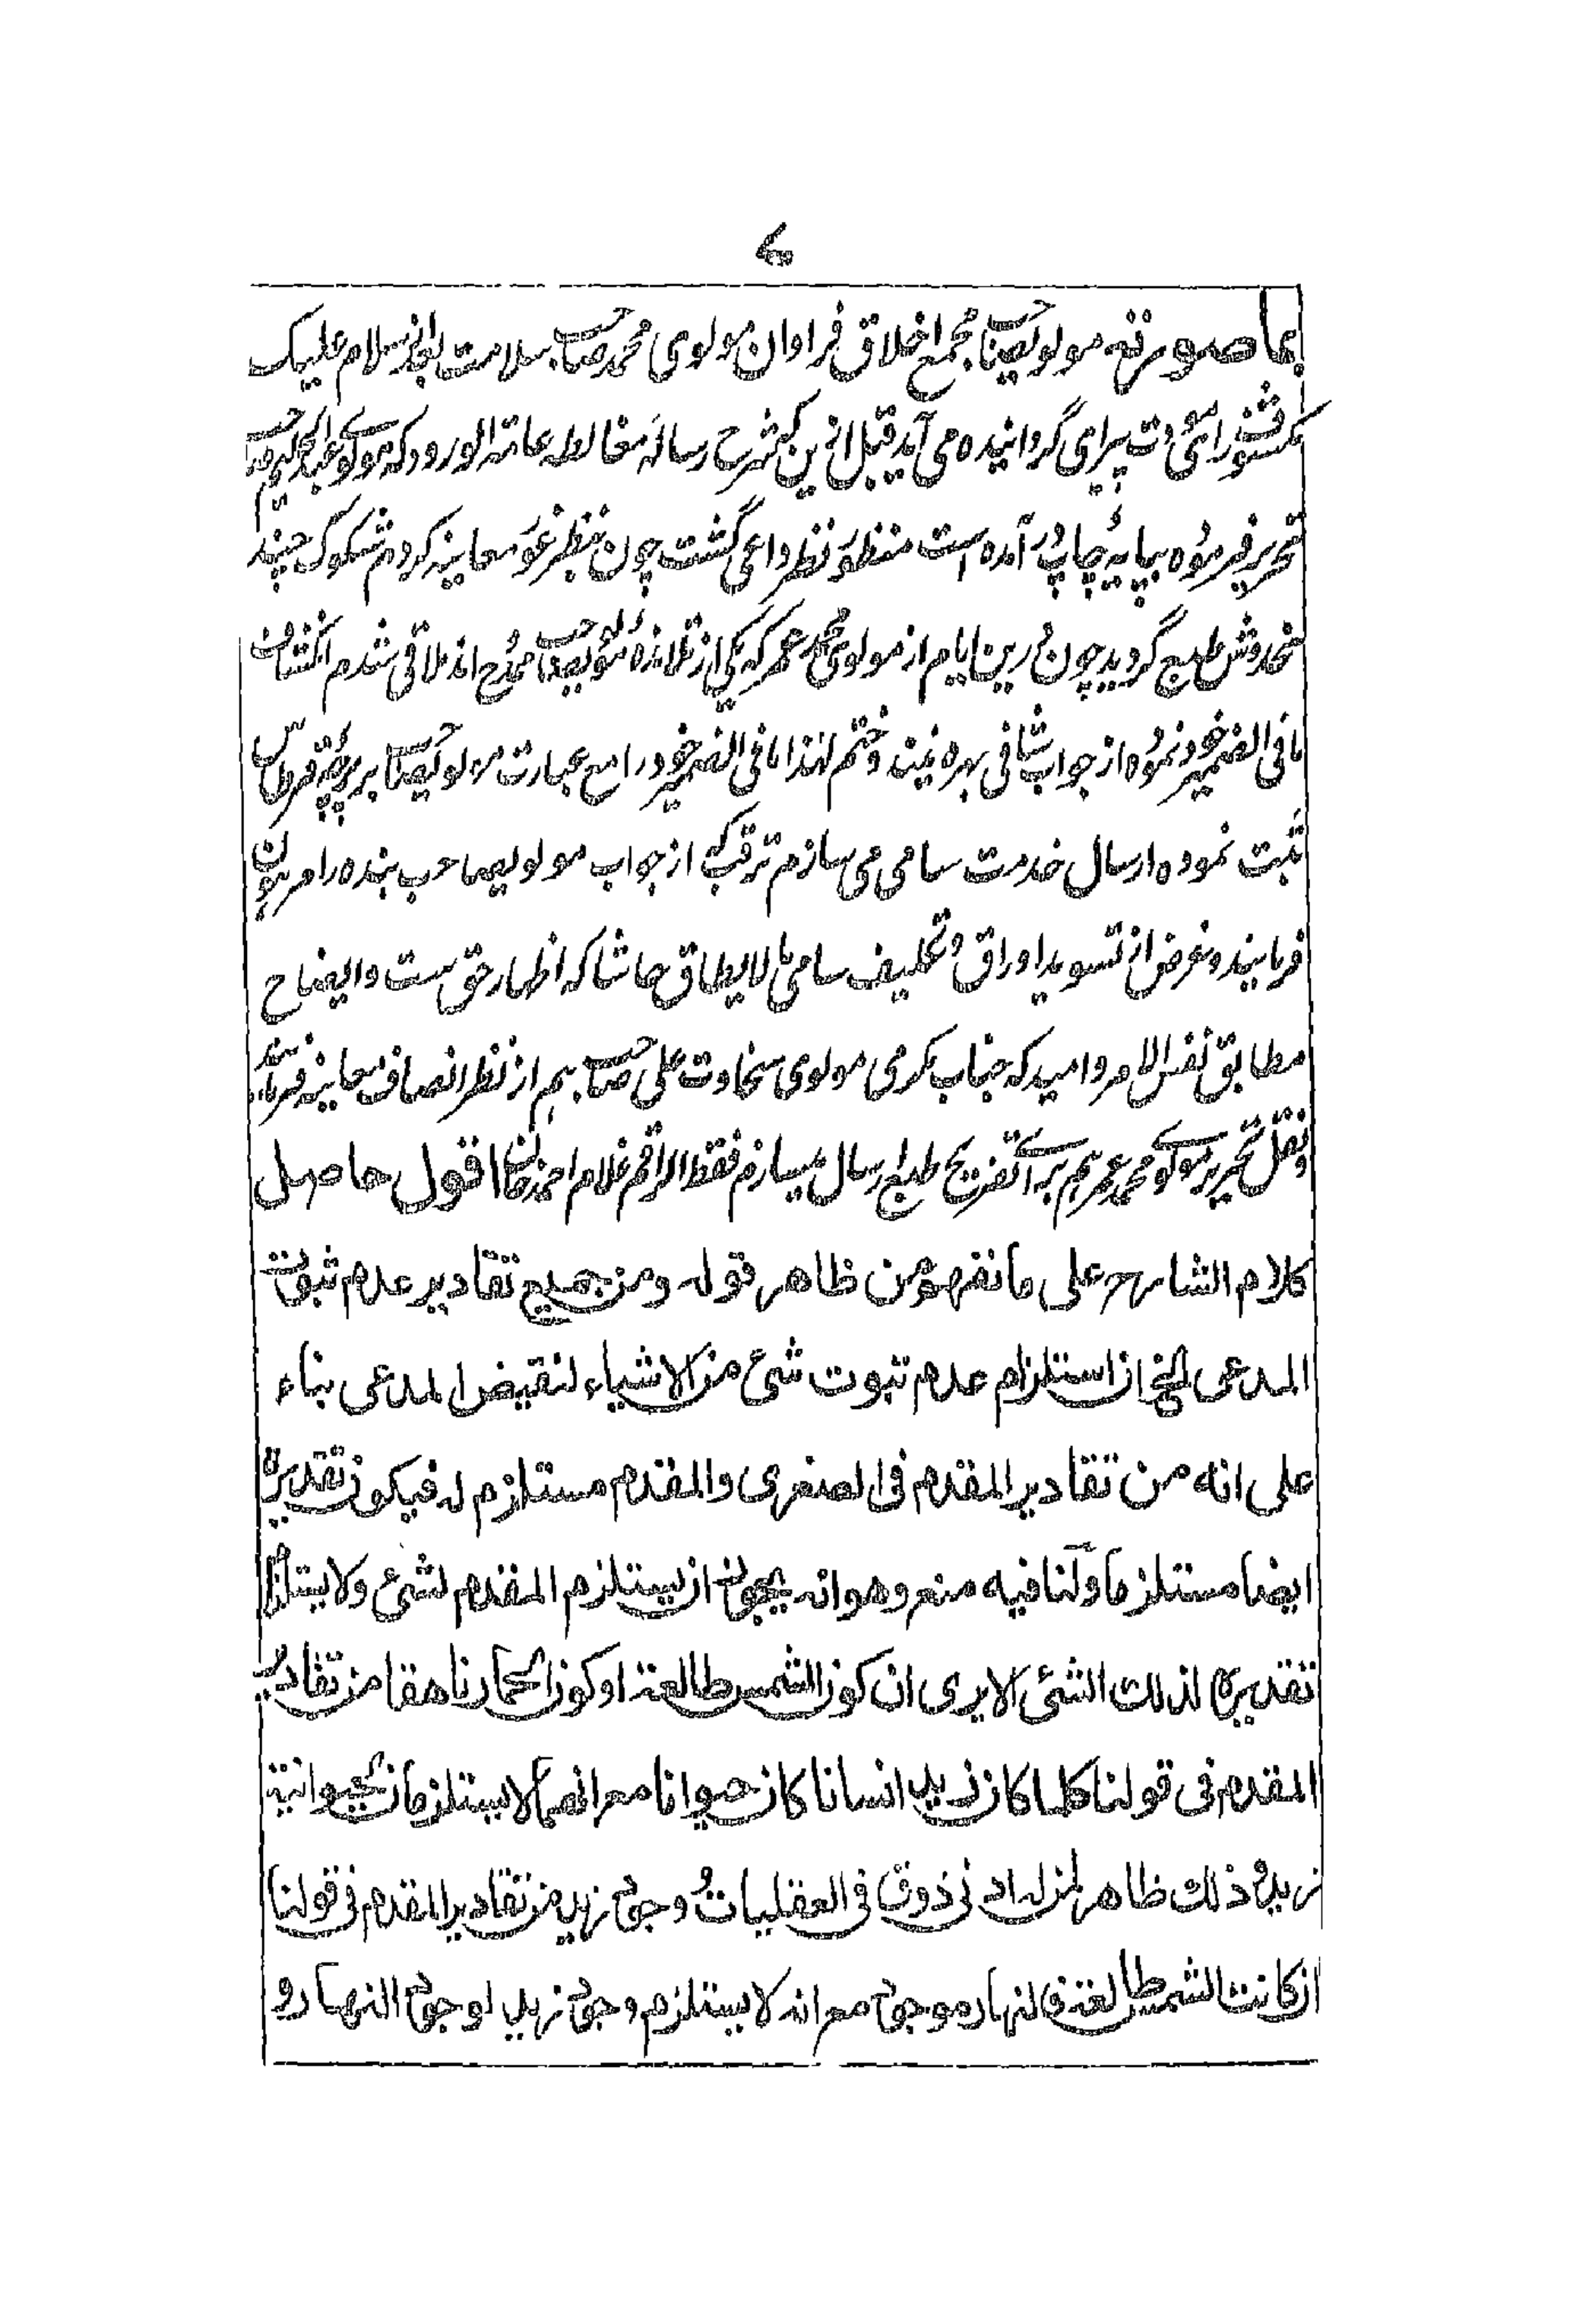 بما صورته مولویصاحب مجمع اخلاق فراوان مولوی محمد صاحب سلامت بعد از سلام علیک
مکشوف رائی مودت پیرای گردانیده می آید قبل ازین که شرح رسالهٔ مغالطه عامة الورود که مولوی عبد الحلیم صاحب
تحریر فرموده بپایهٔ چاپ در آمده است منظور نظر داعی گشت چون بنظر غور معاینه کردم شکوک چند
مخدوش طبع گردید چون درین ایام از مولوی محمد عمر که یکی از تلامذهٔ مولویصاحب ممدوح اند ملاقی شدم انکشاف
ما فی الضمیر خود نموده از جواب شافی بهره نیندوختم لهذا ما فی الضمیر خود را مع عبارت مولویصاحب بر پرچهٔ قرطاس
ثبت نموده ارسال خدمت سامی می سازم ترقب که از جواب مولویصاحب بنده را مرهون
فرمایند و غرض از تسوید اوراق و تکلیف سامی ما لا یطاق حاشا که اظهار حق ست و ایضاح
مطابق نفس الامر و امید که جناب مکرمی مولوی سخاوت علی صاحب هم از نظر انصاف معاینه فرمایند
و نقل تحریر مولوی محمد عمر هم برای تفریح طبع ارسال میسازم فقط الراقم غلام احمد خان اقول حاصل
کلام الشارح علی ما نفهمه من ظاهر قوله ومن جمیع تقادیر عدم ثبوت
المدعی الخ ان استلزام عدم ثبوت شئ من الاشیاء لنقیض المدعی بناء
علی انه من تقادیر المقدم فی الصغری والمقدم مستلزم له فیکون تقدیره
ایضا مستلزما ولنا فیه منع وهو انه یجوز ان یستلزم المقدم لشئ ولا یستلزم
تقدیره لذلك الشئ الا یری ان کون الشمس طالعة او کون الحمار ناهقا من تقادیر
المقدم فی قولنا کلما کان زید انسانا کان حیوانا مع انهما لا یستلزمان حیوانیة
زید وذلك ظاهر لمن له ادنی ذوق فی العقلیات ووجود زید من تقادیر المقدم فی قولنا
ان کانت الشمس طالعة فالنهار موجود مع انه لا یستلزم وجود زید لوجود النهار و